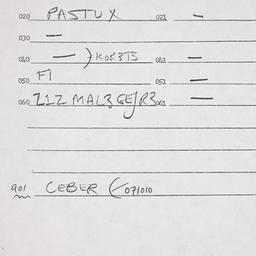 020 PASTUX 021 —
030 —
040 — } KOR3T3 041 —
050 FI 051 —
060 Z1Z MAL3GE/R3 061 —
901 CEBER (071010